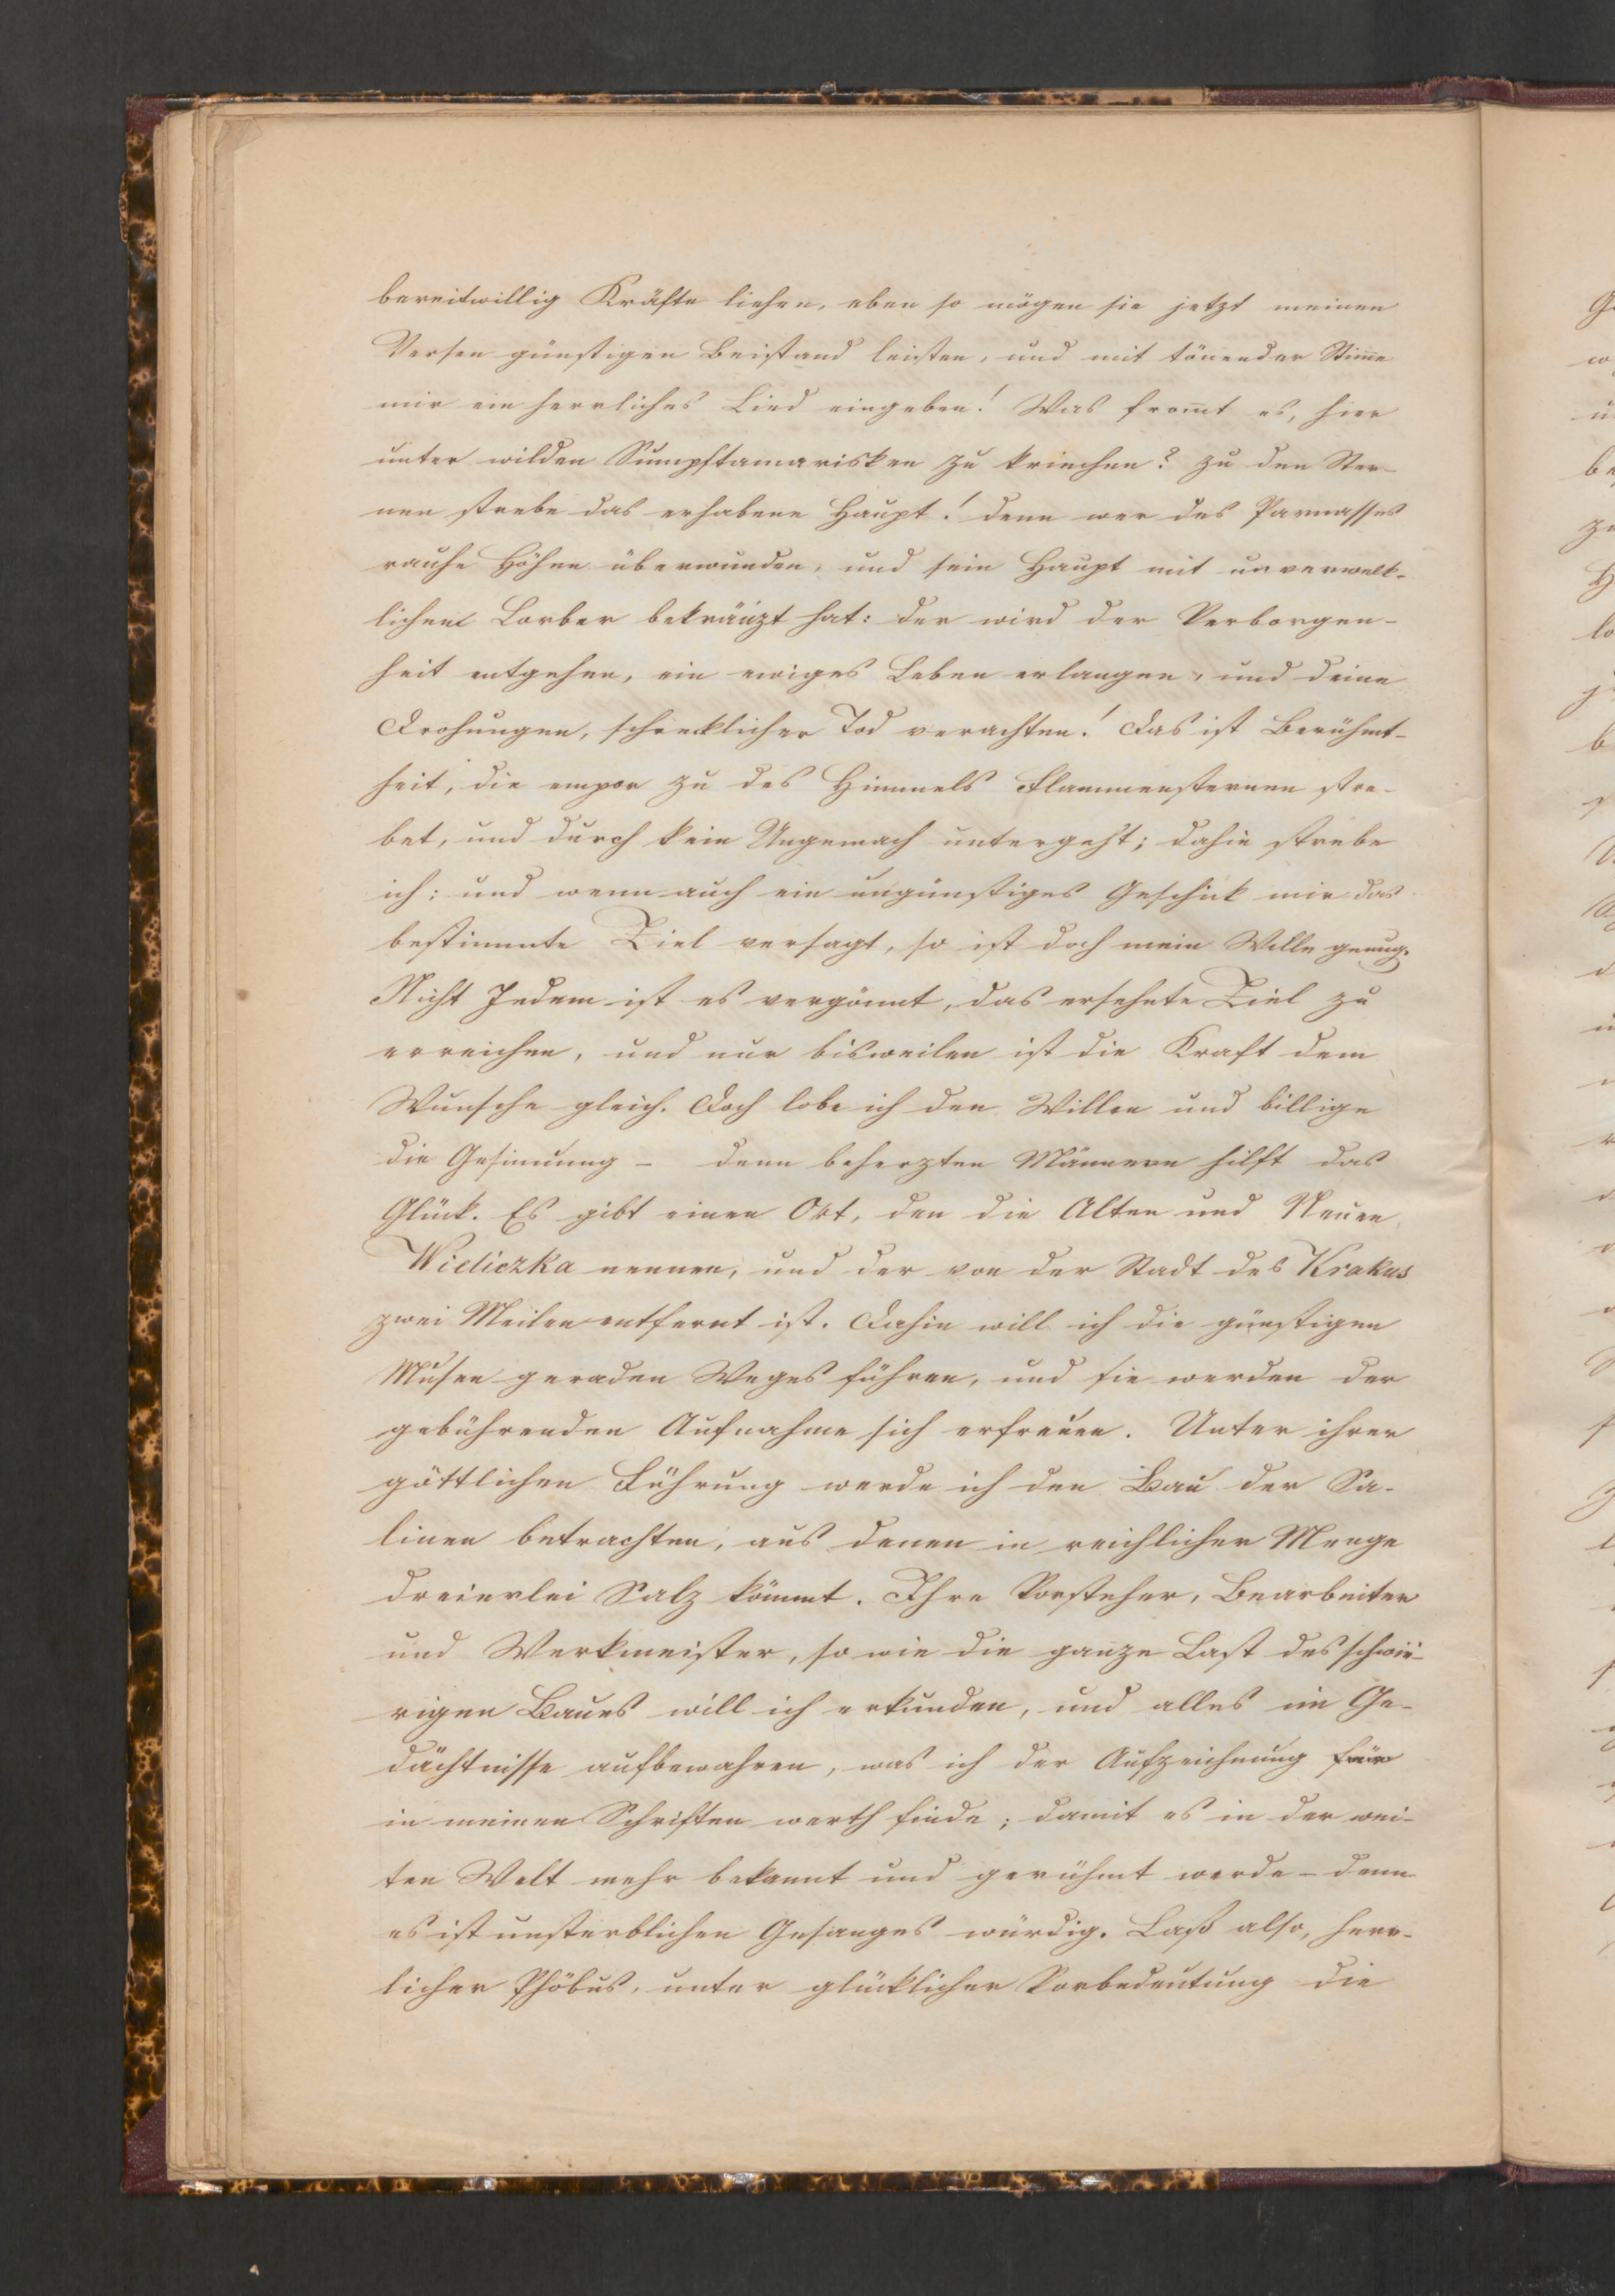 bereitwillig Kräfte liehen, eben so mögen sie jetzt meinen
Versen günstigen Beistand leisten, und mit tönender Stim̅e
mir ein herrliches Lied eingeben! Was from̅t es, hier
unter wilden Sumpftamarisken zu kriechen? zu den Ster-
nen strebe das erhabene Haupt! denn wer des Parnasses
rauhe Höhen überwunden, und sein Haupt mit unverwelk-
lichem Lorber bekränzt hat: der wird der Verborgen-
heit entgehen, ein ewiges Leben erlangen, und deine
Drohungen, schrecklicher Tod verachten! Das ist Berühmt-
heit, die empor zu des Himmels Flammensternen stre-
bet, und durch kein Ungemach untergeht; dahin strebe
ich: und wenn auch ein ungünstiges Geschick mir das
bestimmte Ziel versagt, so ist doch mein Wille genug.
Nicht Jedem ist es vergönnt, das ersehnte Ziel zu
erreichen, und nur bisweilen ist die Kraft dem
Wunsche gleich. Doch lobe ich den Willen und billige
die Gesinnung – denn beherzten Männern hilft das
Glück. Es gibt einen Ort, den die Alten und Neuen
Wieliczka nennen, und der von der Stadt des Krakus
zwei Meilen entfernt ist. Dahin will ich die günstigen
Musen geraden Weges führen, und sie werden der
gebührenden Aufnahme sich erfreuen. Unter ihrer
göttlichen Führung werde ich den Bau der Sa-
linen betrachten, aus denen in reichlicher Menge
dreierlei Salz kömmt. Ihre Vorsteher, Bearbeiter
und Werkmeister, so wie die ganze Last des schwie-
rigen Baues will ich erkunden, und alles im Ge-
dächtnisse aufbewahren, was ich der Aufzeichnung für
in meinen Schriften werth finde; damit es in der wei-
ten Welt mehr bekannt und gerühmt werde – denn
es ist unsterblichen Gesanges würdig. Laß also, herr-
licher Phöbus, unter glücklicher Vorbedeutung die